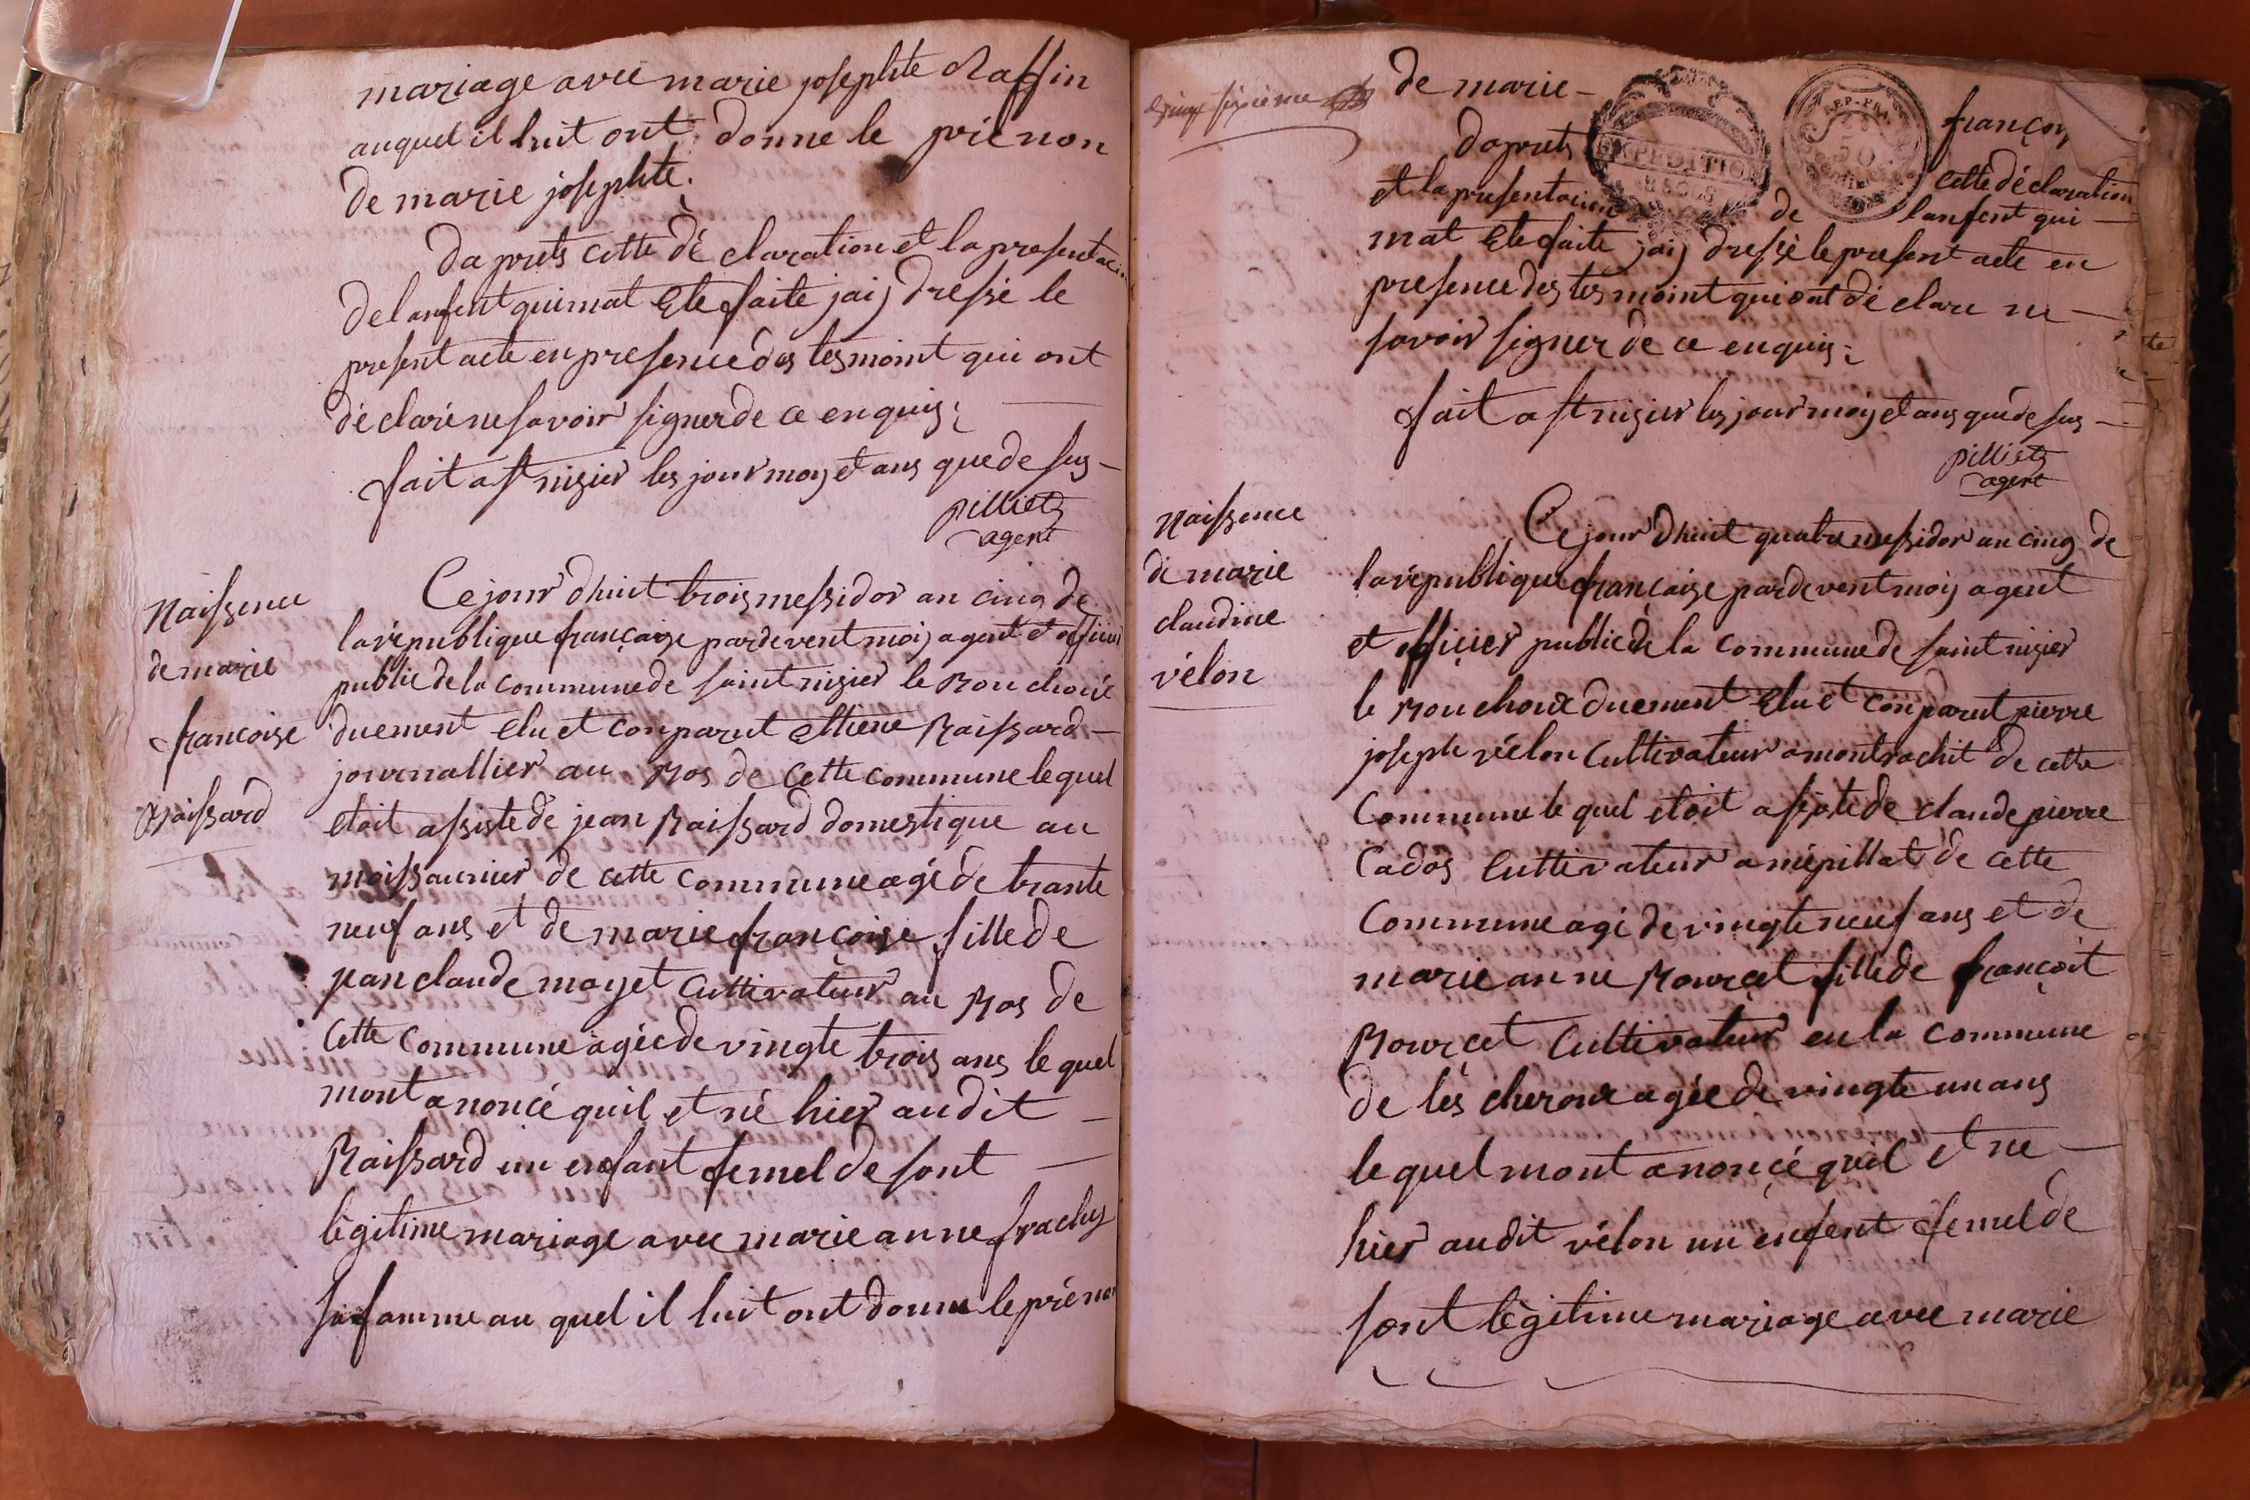 mariage avec marie josephte Raffin
auquel il luit ont donne le prénon
de marie josephte.
daprets cette déclaration et la presentacion
de lanfent qui mat Ete faite jaij dressé le
present acte en presence des tesmoint qui ont
déclaré ne savoir signer de ce enquis;
fait a st nisier les jour moy et ans que de sus
pilliet
agent
Naissence
de marie
francoise
Raissard
Ce jour dhuit trois messidor an cinq de
la république françaige pardevent moij agent et officier
public de la commune de saint nizier le Bouchoux
duement elu et conparut Ettiene Raissard
journallier au Bos de cette commune le quel
etoit assisté de jean Raissard domestique au
moissaunier de cette commune agé de trante
neuf ans et de marie françoise fille de
jean claude moyet Cultivateur au Bos de
cette commune agée de vingte trois ans le quel
mont anoncé quil et né hier audit
Raissard un enfant femel de sont
légitime mariage avec marie anne frachy
sa famme au quel il luit ont donne le prénon
sixieme
de marie
françoy
daprets
EXPEDITION
REP. FRA.
50
cette déclaration
et la presentacion
de
lanfent qui
mat Ete faite jaij dressé le present acte en
presence des tesmoint qui ont déclaré ne
savoir signer de ce enquis;
fait a st nizier les jour moy et ans que de sus
pilliet
agent
Naissence
de marie
claudine
vélon
Ce jour dhuit quatre messidor an cinq de
la république françaige pardevent moij agent
et officier public de la commune de saint nizier
le Bouchoux duement Elu et conparut pierre
joseph vélon Cultivateur a montrachit de cette
Commune le quel etoit asisté de claude pierre
Cados Cultivateur a mépillat de cette
Commune agé de vingte neuf ans et de
marie anne Bourcet fille de françoit
Bourcet Cultivateur en la commune
de lés cheroux agée de vingte un ans
le quel mont anoncé quil et ne
hier audit vélon un enfent femel de
sont légitime mariage avec marie